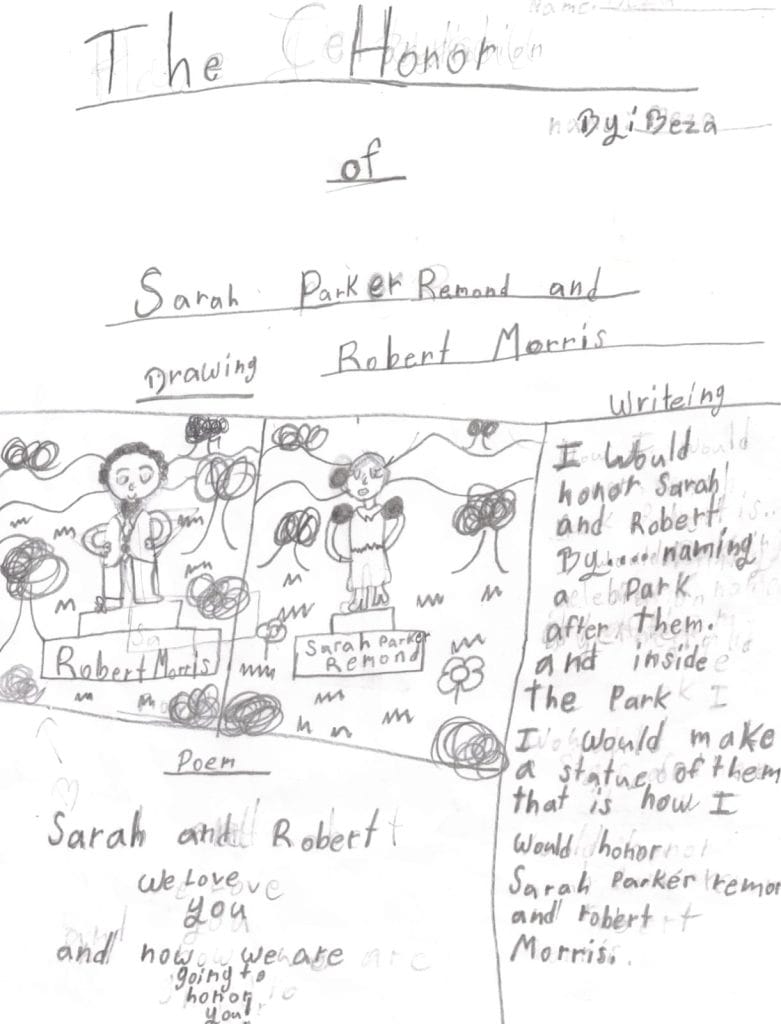 The Honor
By: Beza
of
Sarah Parker Remond and
Robert Morris
Drawing
Robert Morris
Sarah Parker
Remond
Writeing
I Would
honor Sarah
and Robert
By.... naming
a Park
after them.
and inside
the Park
I would make
a statue of them
that is how I
Would honor
Sarah Parker remon
and robert
Morris.
Poem
Sarah and Robert
We Love
you
and now we are
going to
honor
you